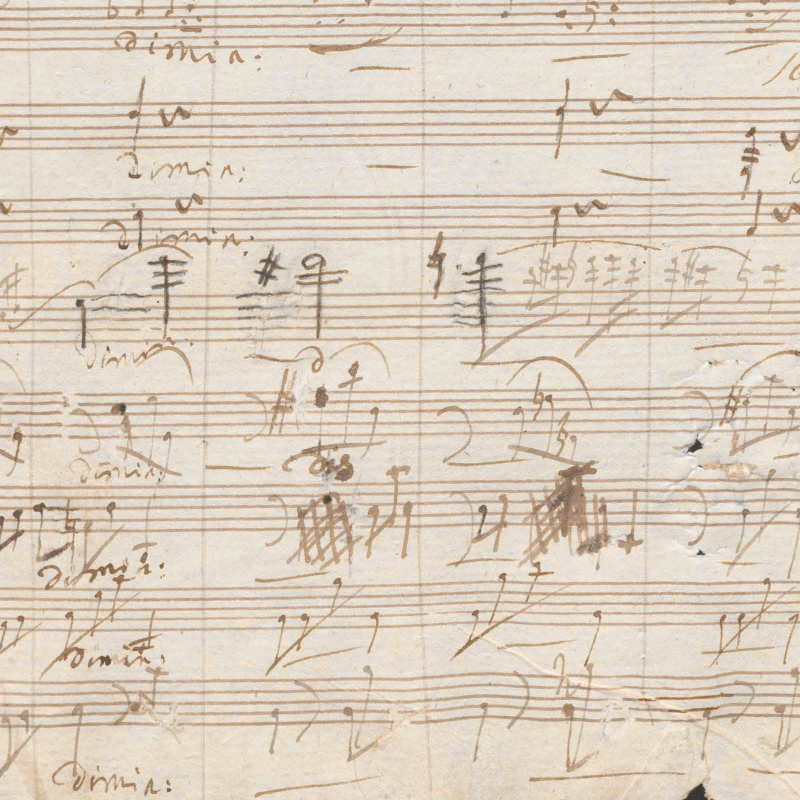 dimin:
dimin:
dimin:
dimin:
dimin:
dimin:
dimin:
dimin: